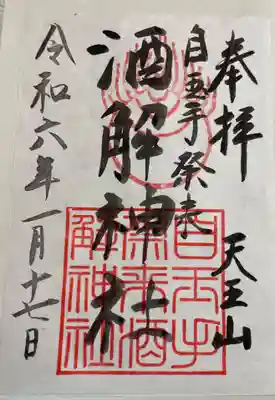 奉拝　天王山
自玉手祭来
酒解神社
令和六年一月十七日
自玉手
祭来酒
解神社